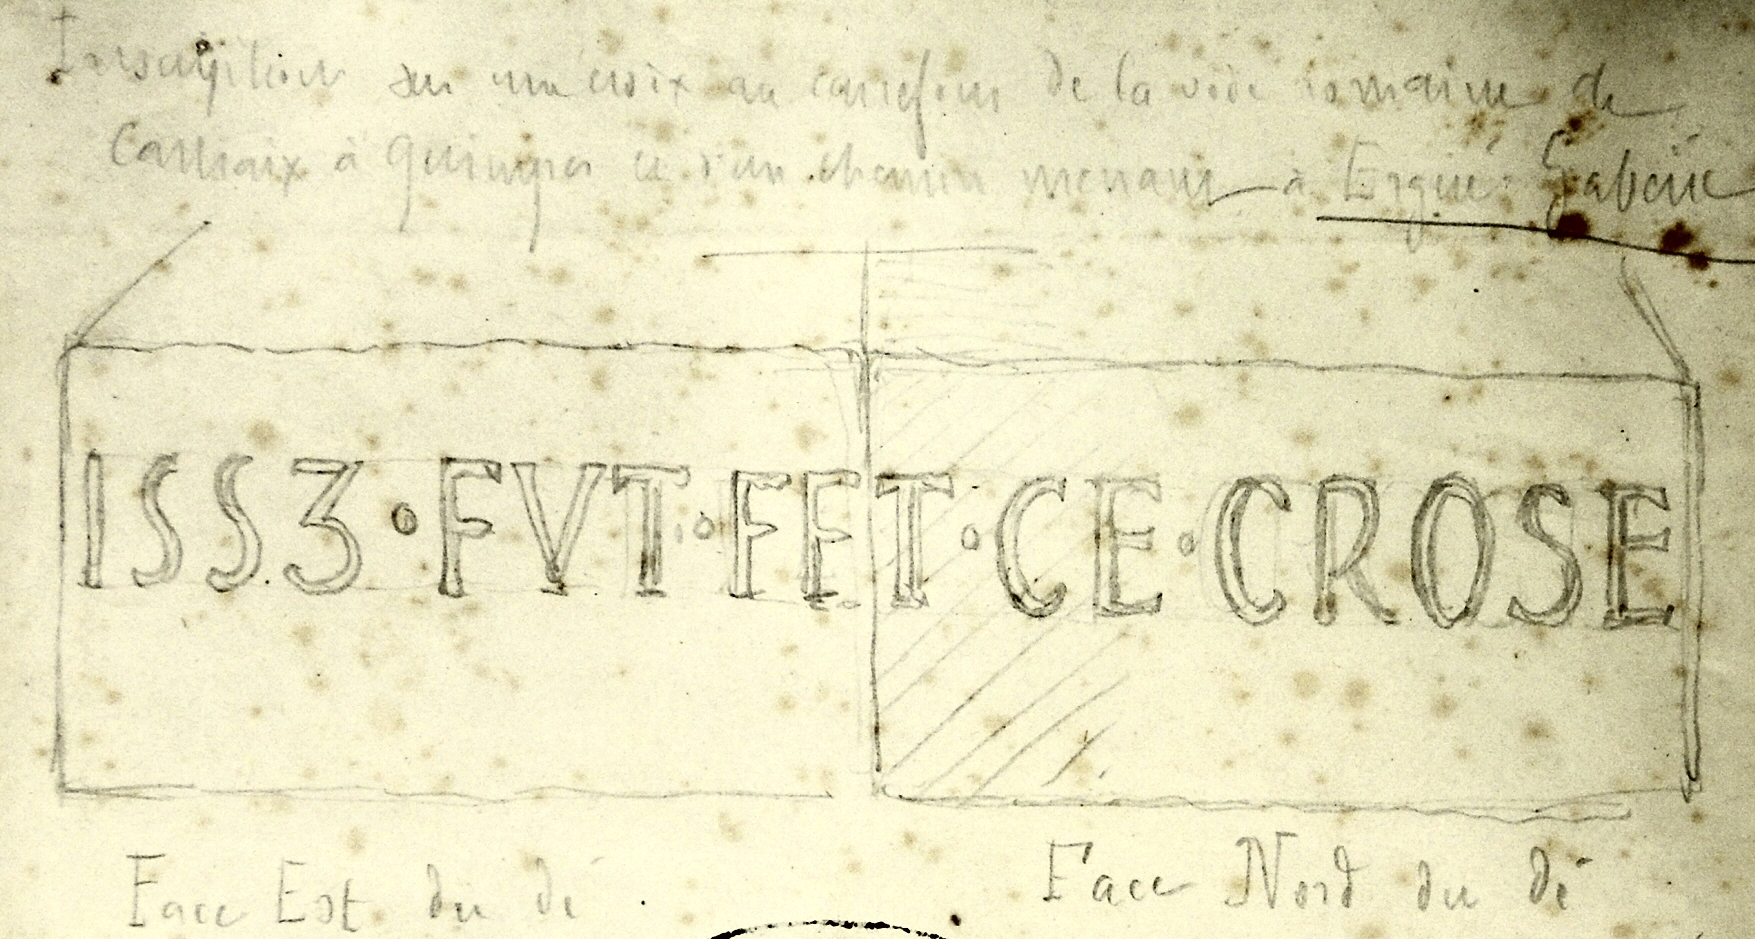 Inscription sur une croix au carrefour de la voie romaine de
Carhaix à Quimper et d'un chemin menant à Ergué-Gabéric
ISS3·FVT·FFT·CE·CROSE
Face Est du dé
Face Nord du dé